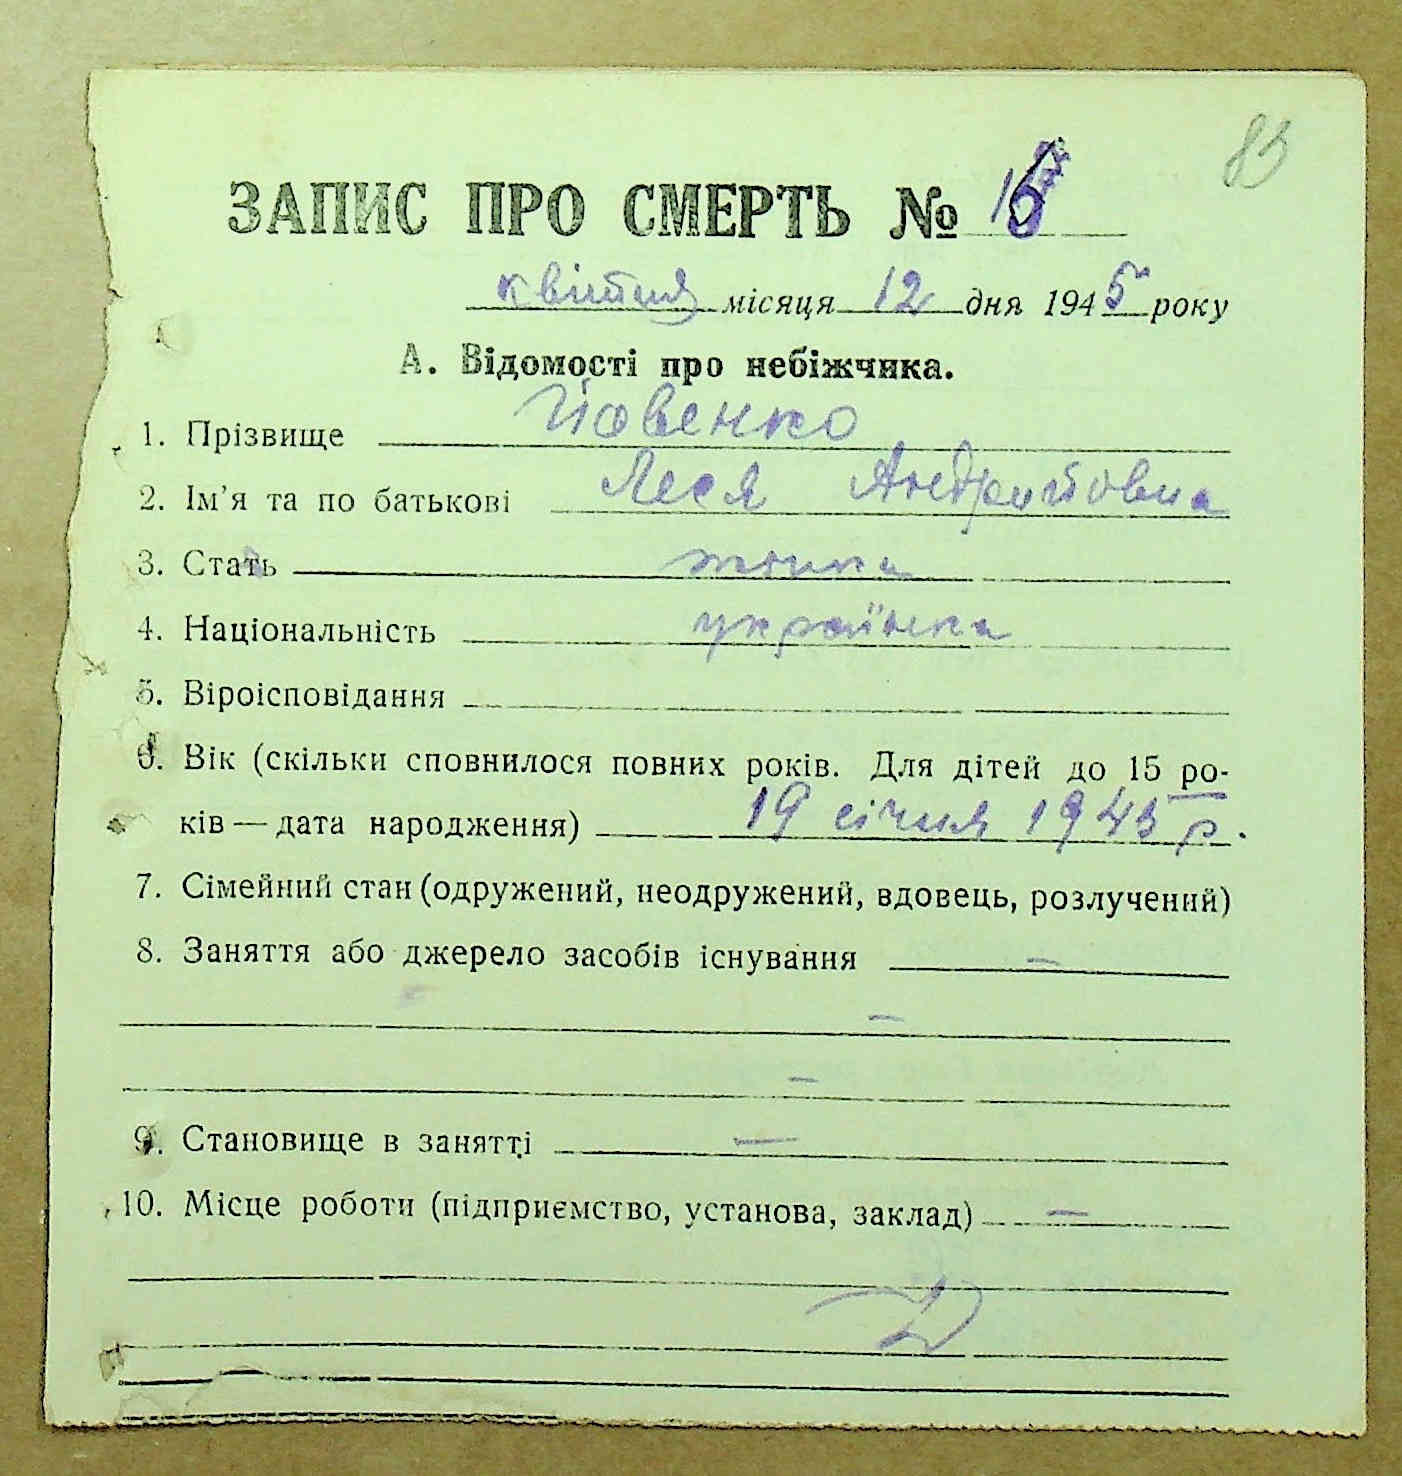 83
ЗАПИС ПРО СМЕРТЬ № 16
квітня місяця 12 дня 1945 року
А. Відомості про небіжчика.
1. Прізвище Йовенко
2. Ім'я та по батькові Леся Андріййовна
3. Стать жінка
4. Національність українка
5. Віроісповідання
6. Вік (скільки сповнилося повних років. Для дітей до 15 ро-
ків — дата народження) 19 січня 1943 р.
7. Сімейний стан (одружений, неодружений, вдовець, розлучений)
8. Заняття або джерело засобів існування —
—
—
9. Становище в занятті —
10. Місце роботи (підприємство, установа, заклад) —